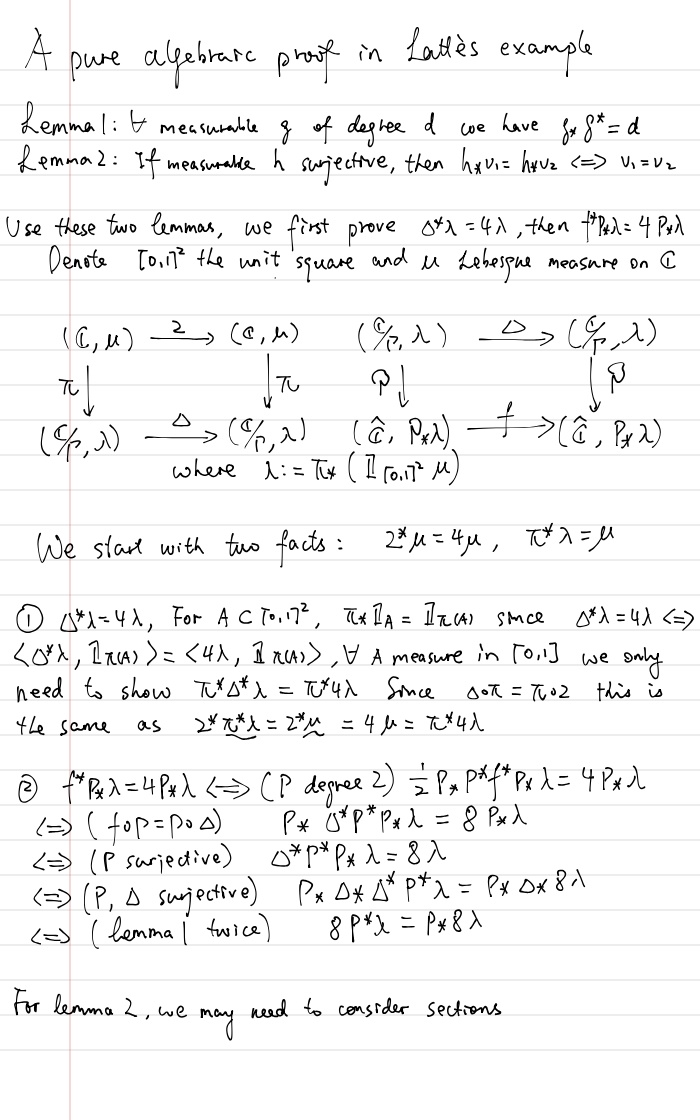 A pure algebraic proof in Lattès example
Lemma 1: ∀ measurable g of degree d we have g_* g^* = d
Lemma 2: If measurable h surjective, then h_*ν_1 = h_*ν_2 <=> ν_1 = ν_2
Use these two lemmas, we first prove Δ^*λ = 4λ, then f^*P_*λ = 4 P_*λ
Denote [0,1]^2 the unit square and μ Lebesgue measure on ℂ
(ℂ, μ) —2→ (ℂ, μ) (ℂ/Γ, λ) —Δ→ (ℂ/Γ, λ)
π↓ ↓π P↓ ↓P
(ℂ/Γ, λ) —Δ→ (ℂ/Γ, λ) (Ĉ, P_*λ) —f→ (Ĉ, P_*λ)
where λ := π_*(𝟙_{[0,1]^2} μ)
We start with two facts: 2^*μ = 4μ, π^*λ = μ
① Δ^*λ = 4λ, For A ⊂ [0,1]^2, π_*𝟙_A = 𝟙_{π(A)} since Δ^*λ = 4λ <=>
⟨Δ^*λ, 𝟙_{π(A)}⟩ = ⟨4λ, 𝟙_{π(A)}⟩, ∀ A measure in [0,1] we only
need to show π^*Δ^*λ = π^*4λ Since Δ∘π = π∘2 this is
the same as 2^*π^*λ = 2^*μ = 4μ = π^*4λ
② f^*P_*λ = 4P_*λ <=> (P degree 2) 1/2 P_* P^* f^* P_*λ = 4P_*λ
<=> (f∘p = p∘Δ) P_* Δ^* P^* P_*λ = 8 P_*λ
<=> (P surjective) Δ^* P^* P_*λ = 8λ
<=> (P, Δ surjective) P_* Δ_* Δ^* P^*λ = P_* Δ_* 8λ
<=> (lemma 1 twice) 8P^*λ = P_*8λ
For lemma 2, we may need to consider sections